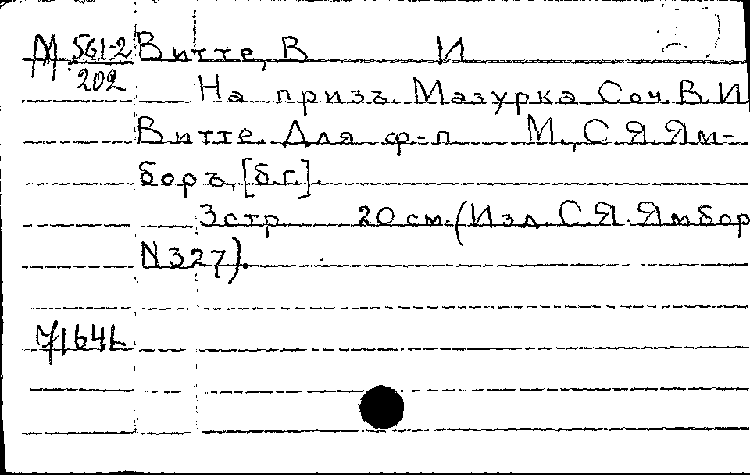 М 561-2 Витте, В И
202 На призъ. Мазурка. Соч. В. И
Витте. Для ф-п М., С. Я. Ям-
боръ, [б.г.].
3 стр 20 см. (Изд. С. Я. Ямбор
N 327).